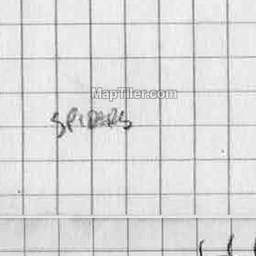 MapTiler.com
SPIDERS